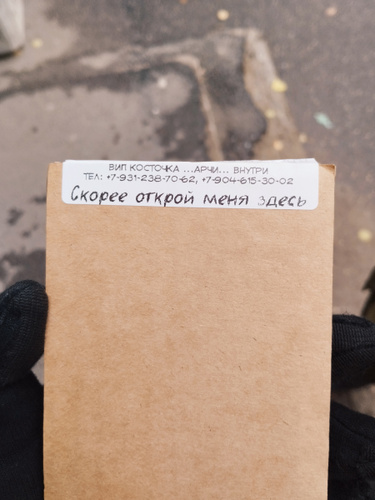 ВИП КОСТОЧКА ...АРЧИ... ВНУТРИ
ТЕЛ: +7-931-238-70-62, +7-904-615-30-02
Скорее открой меня здесь